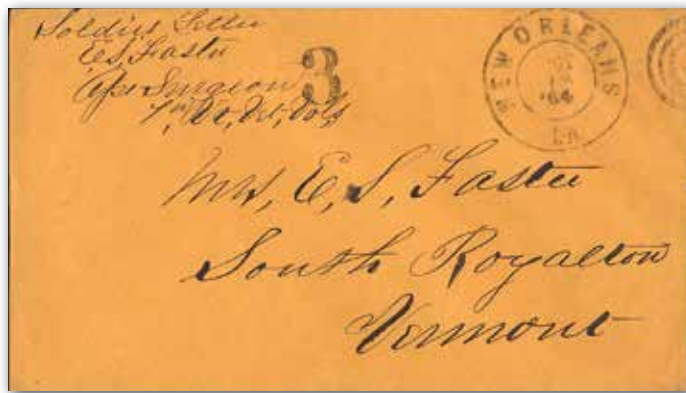 Soldiers Letter
E. S. Foster
Surgeon
7th Vt. Vet. Vols
3
NEW ORLEANS
'64
LA.
Mrs. E. S. Foster
South Royalton
Vermont